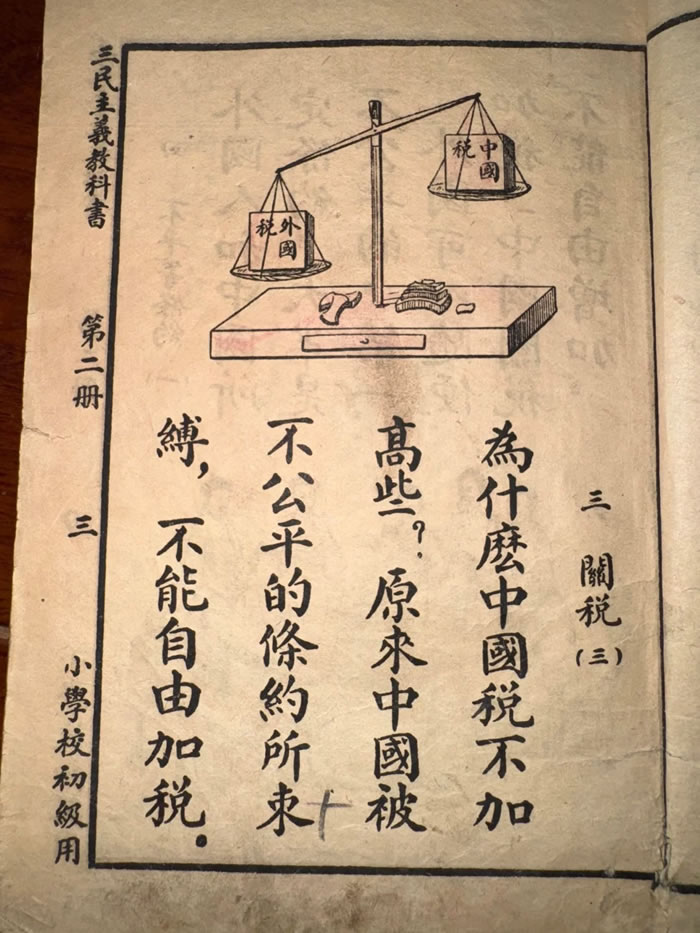 三　關税（三）
中國
税
外國
税
為什麽中國税不加
高些？原來中國被
不公平的條約所束
縛，不能自由加税。
三民主義教科書　第二册　三　小學校初級用